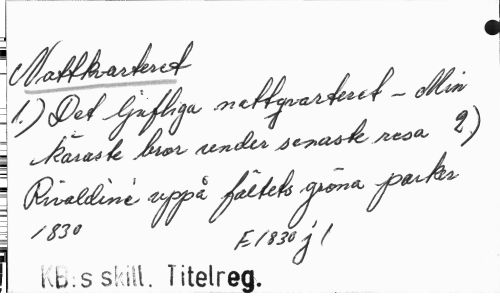 Nattkvarteret
1.) Det ljufliga nattqvarteret – Min
käraste bror under senaste resa 2.)
Rinaldini uppå fältets gröna parker
1830 E 1830 j 1
KB:s skill. Titelreg.